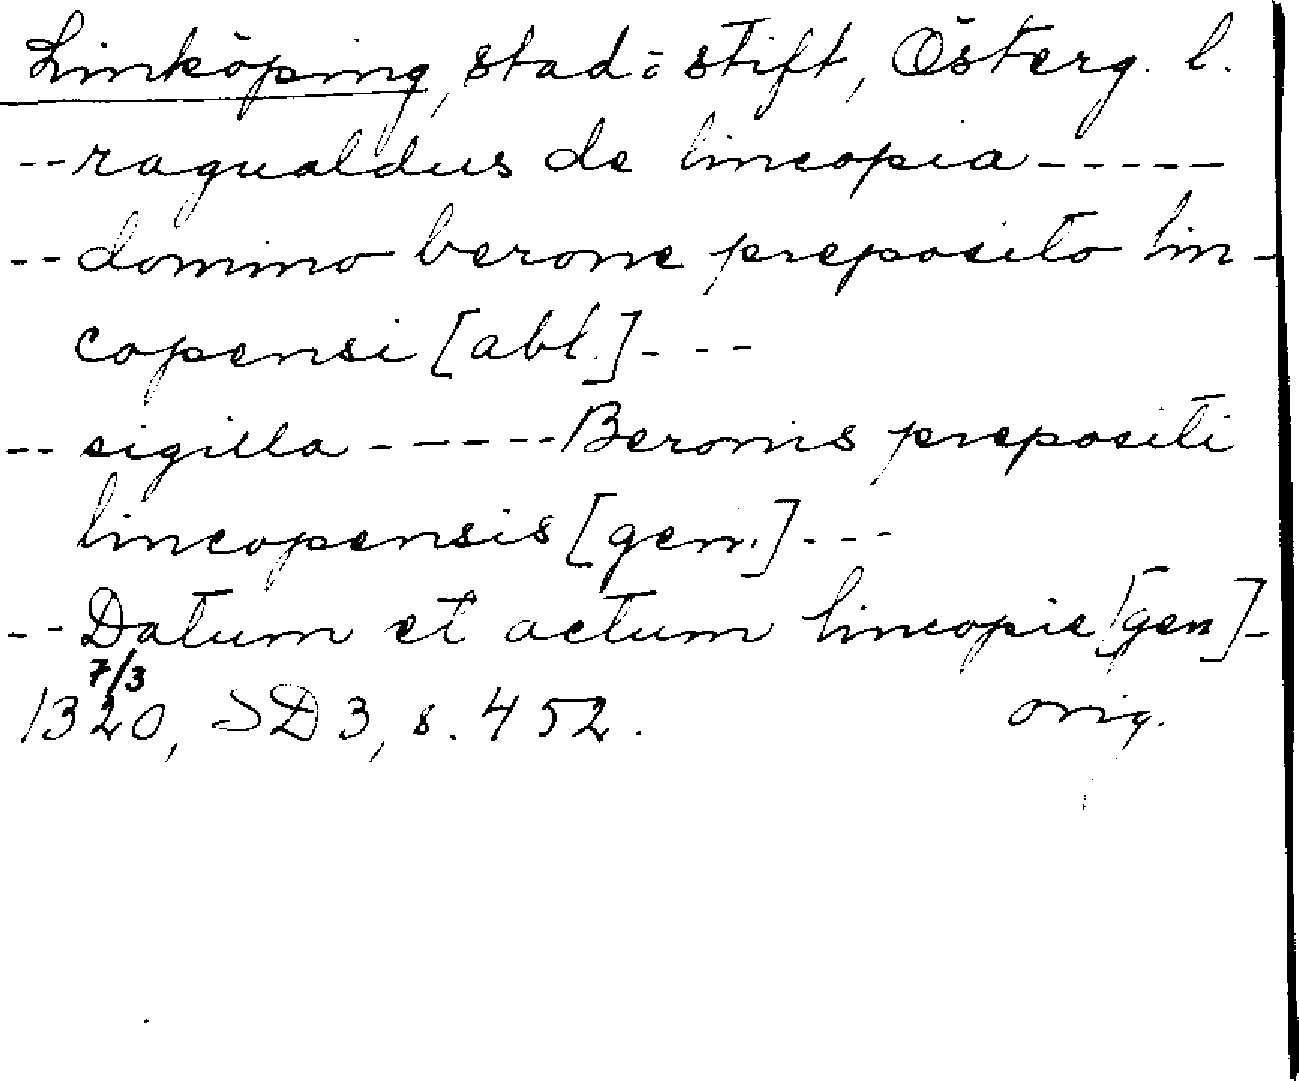 Linköping, stad o stift, Österg. l.
-- ragualdus de lincopia -----
-- domino berone preposito lin-
copensi [abl.] ---
-- sigilla ----- Beronis prepositi
lincopensis [gen.] ---
-- Datum et actum lincopie [gen] -
7/3
1320, SD 3, s. 452. orig.